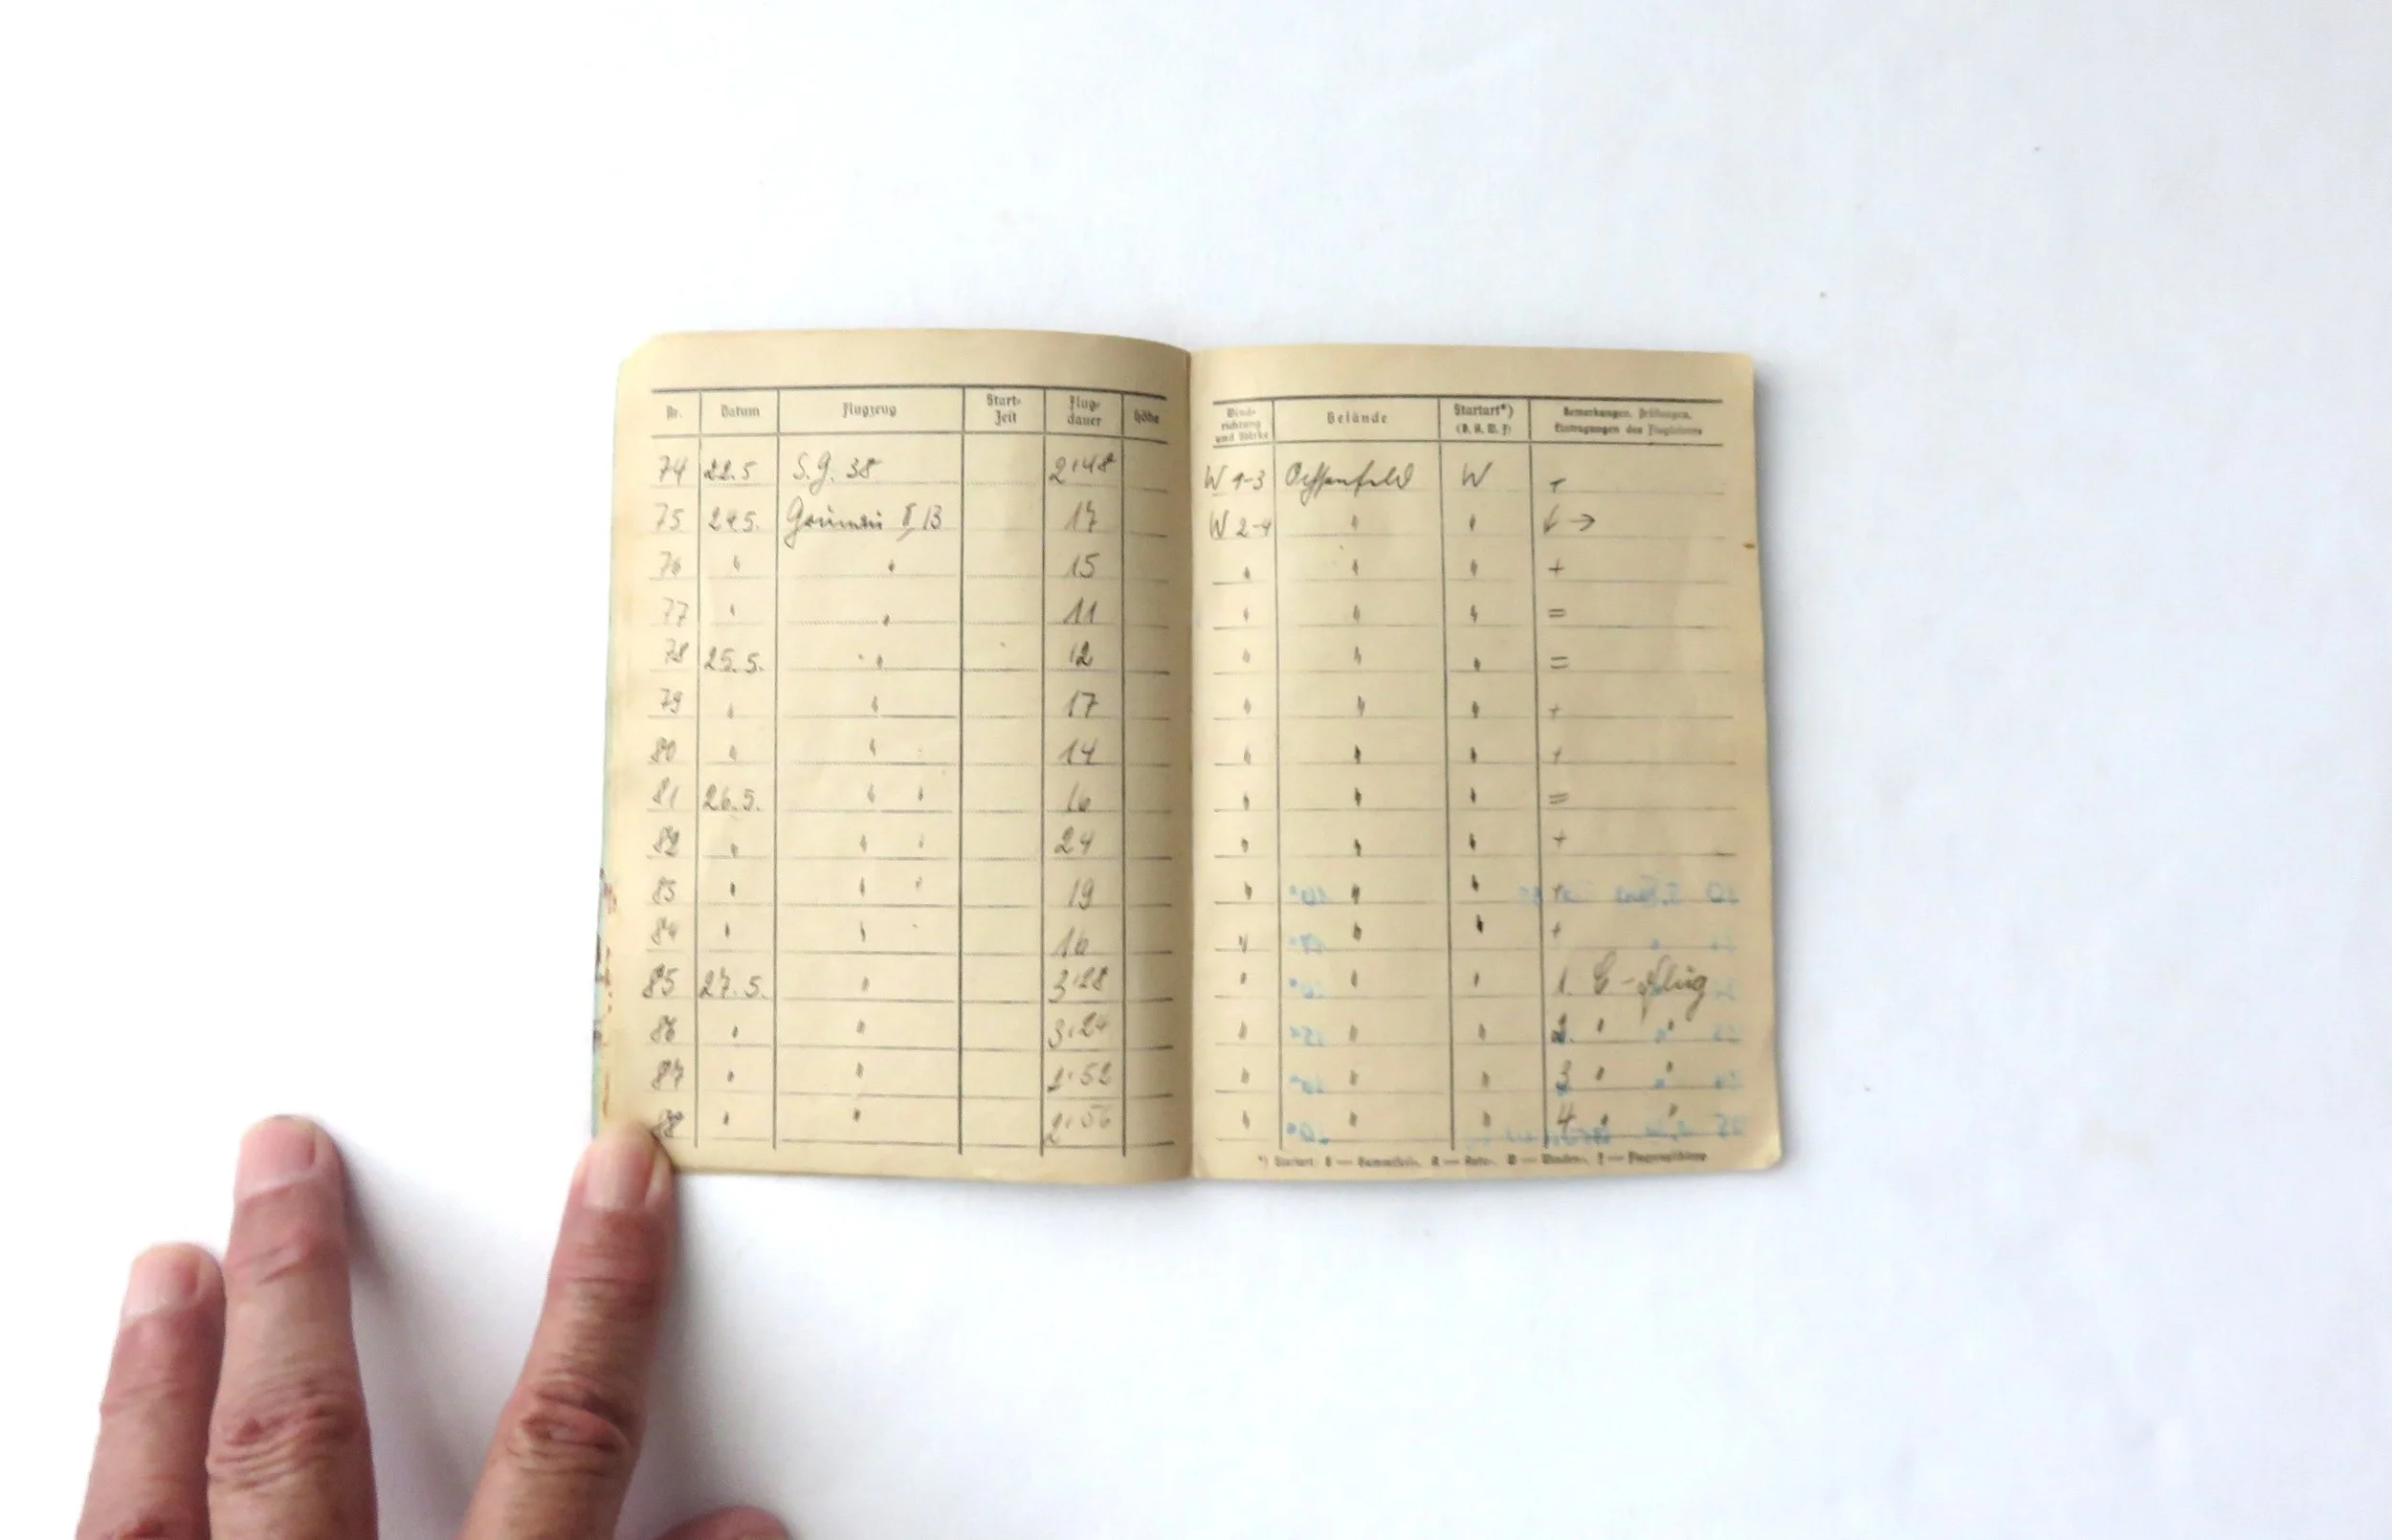 Nr. Datum Flugzeug Start-Zeit Flug-dauer Höhe Wind-richtung und Stärke Gelände Startart*) (G. A. W. F) Bemerkungen, Prüfungen, Eintragungen des Fluglehrers
74 22.5 S.G. 38 2'48 W 1-3 Ochsenfeld W +
75 24.5. Grunau II B 17 W 2-4 " " ↓ →
76 " " 15 " " " +
77 " " 11 " " " =
78 25.5. " 12 " " " =
79 " " 17 " " " +
80 " " 14 " " " +
81 26.5. " " 16 " " " =
82 " " " 24 " " " +
83 " " " 19 " " " +
84 " " 16 " " " +
85 27.5. " 3'28 " " " 1. C-Flug
86 " " 3'24 " " " 2. " "
87 " " 2'52 " " " 3 " "
88 " " 2'56 " " " 4. "
*) Startart: G — Gummiseil-, A — Auto-, W — Winden-, F — Flugzeugschlepp